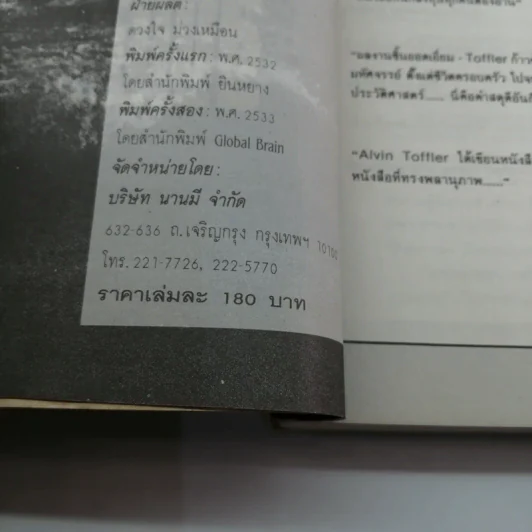 ฝ่ายผลิต:
ดวงใจ ม่วงเหมือน
พิมพ์ครั้งแรก: พ.ศ. 2532
โดยสำนักพิมพ์ ยินหยาง
พิมพ์ครั้งสอง: พ.ศ. 2533
โดยสำนักพิมพ์ Global Brain
จัดจำหน่ายโดย:
บริษัท นานมี จำกัด
632-636 ถ.เจริญกรุง กรุงเทพฯ 10100
โทร. 221-7726, 222-5770
ราคาเล่มละ 180 บาท
"ผลงานชิ้นยอดเยี่ยม - Toffler
มหัศจรรย์ ตั้งแต่ชีวิตครอบครัว
ประวัติศาสตร์..... นี่คือคำสดุดี
"Alvin Toffler ได้เขียนหนังสือ
หนังสือที่ทรงพลานุภาพ....."